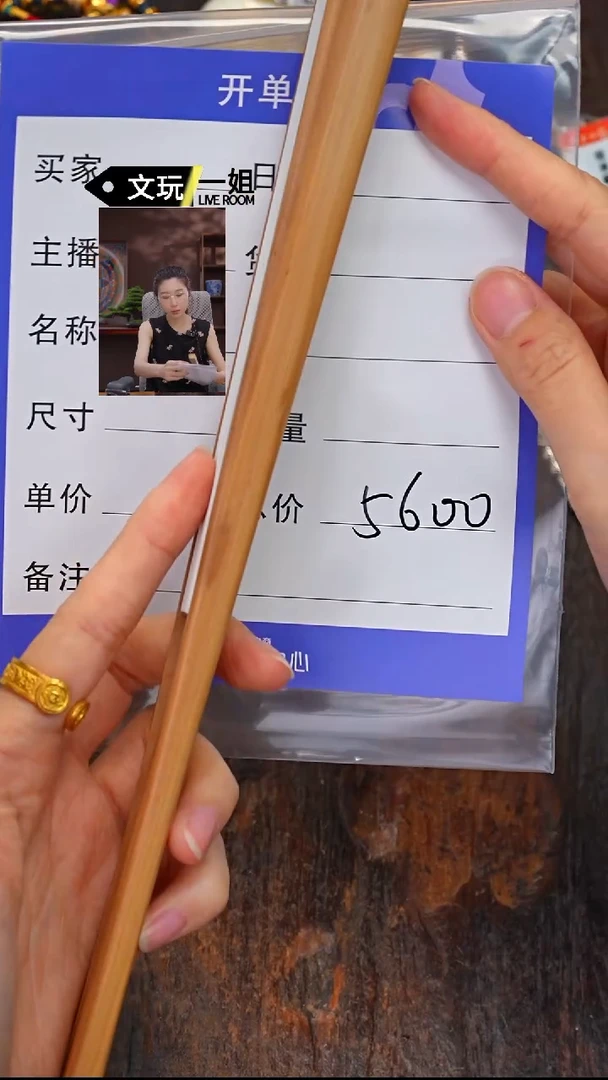 开单
买家
日
文玩 一姐
LIVE ROOM
主播
名称
尺寸
量
单价
价 5600
备注
心